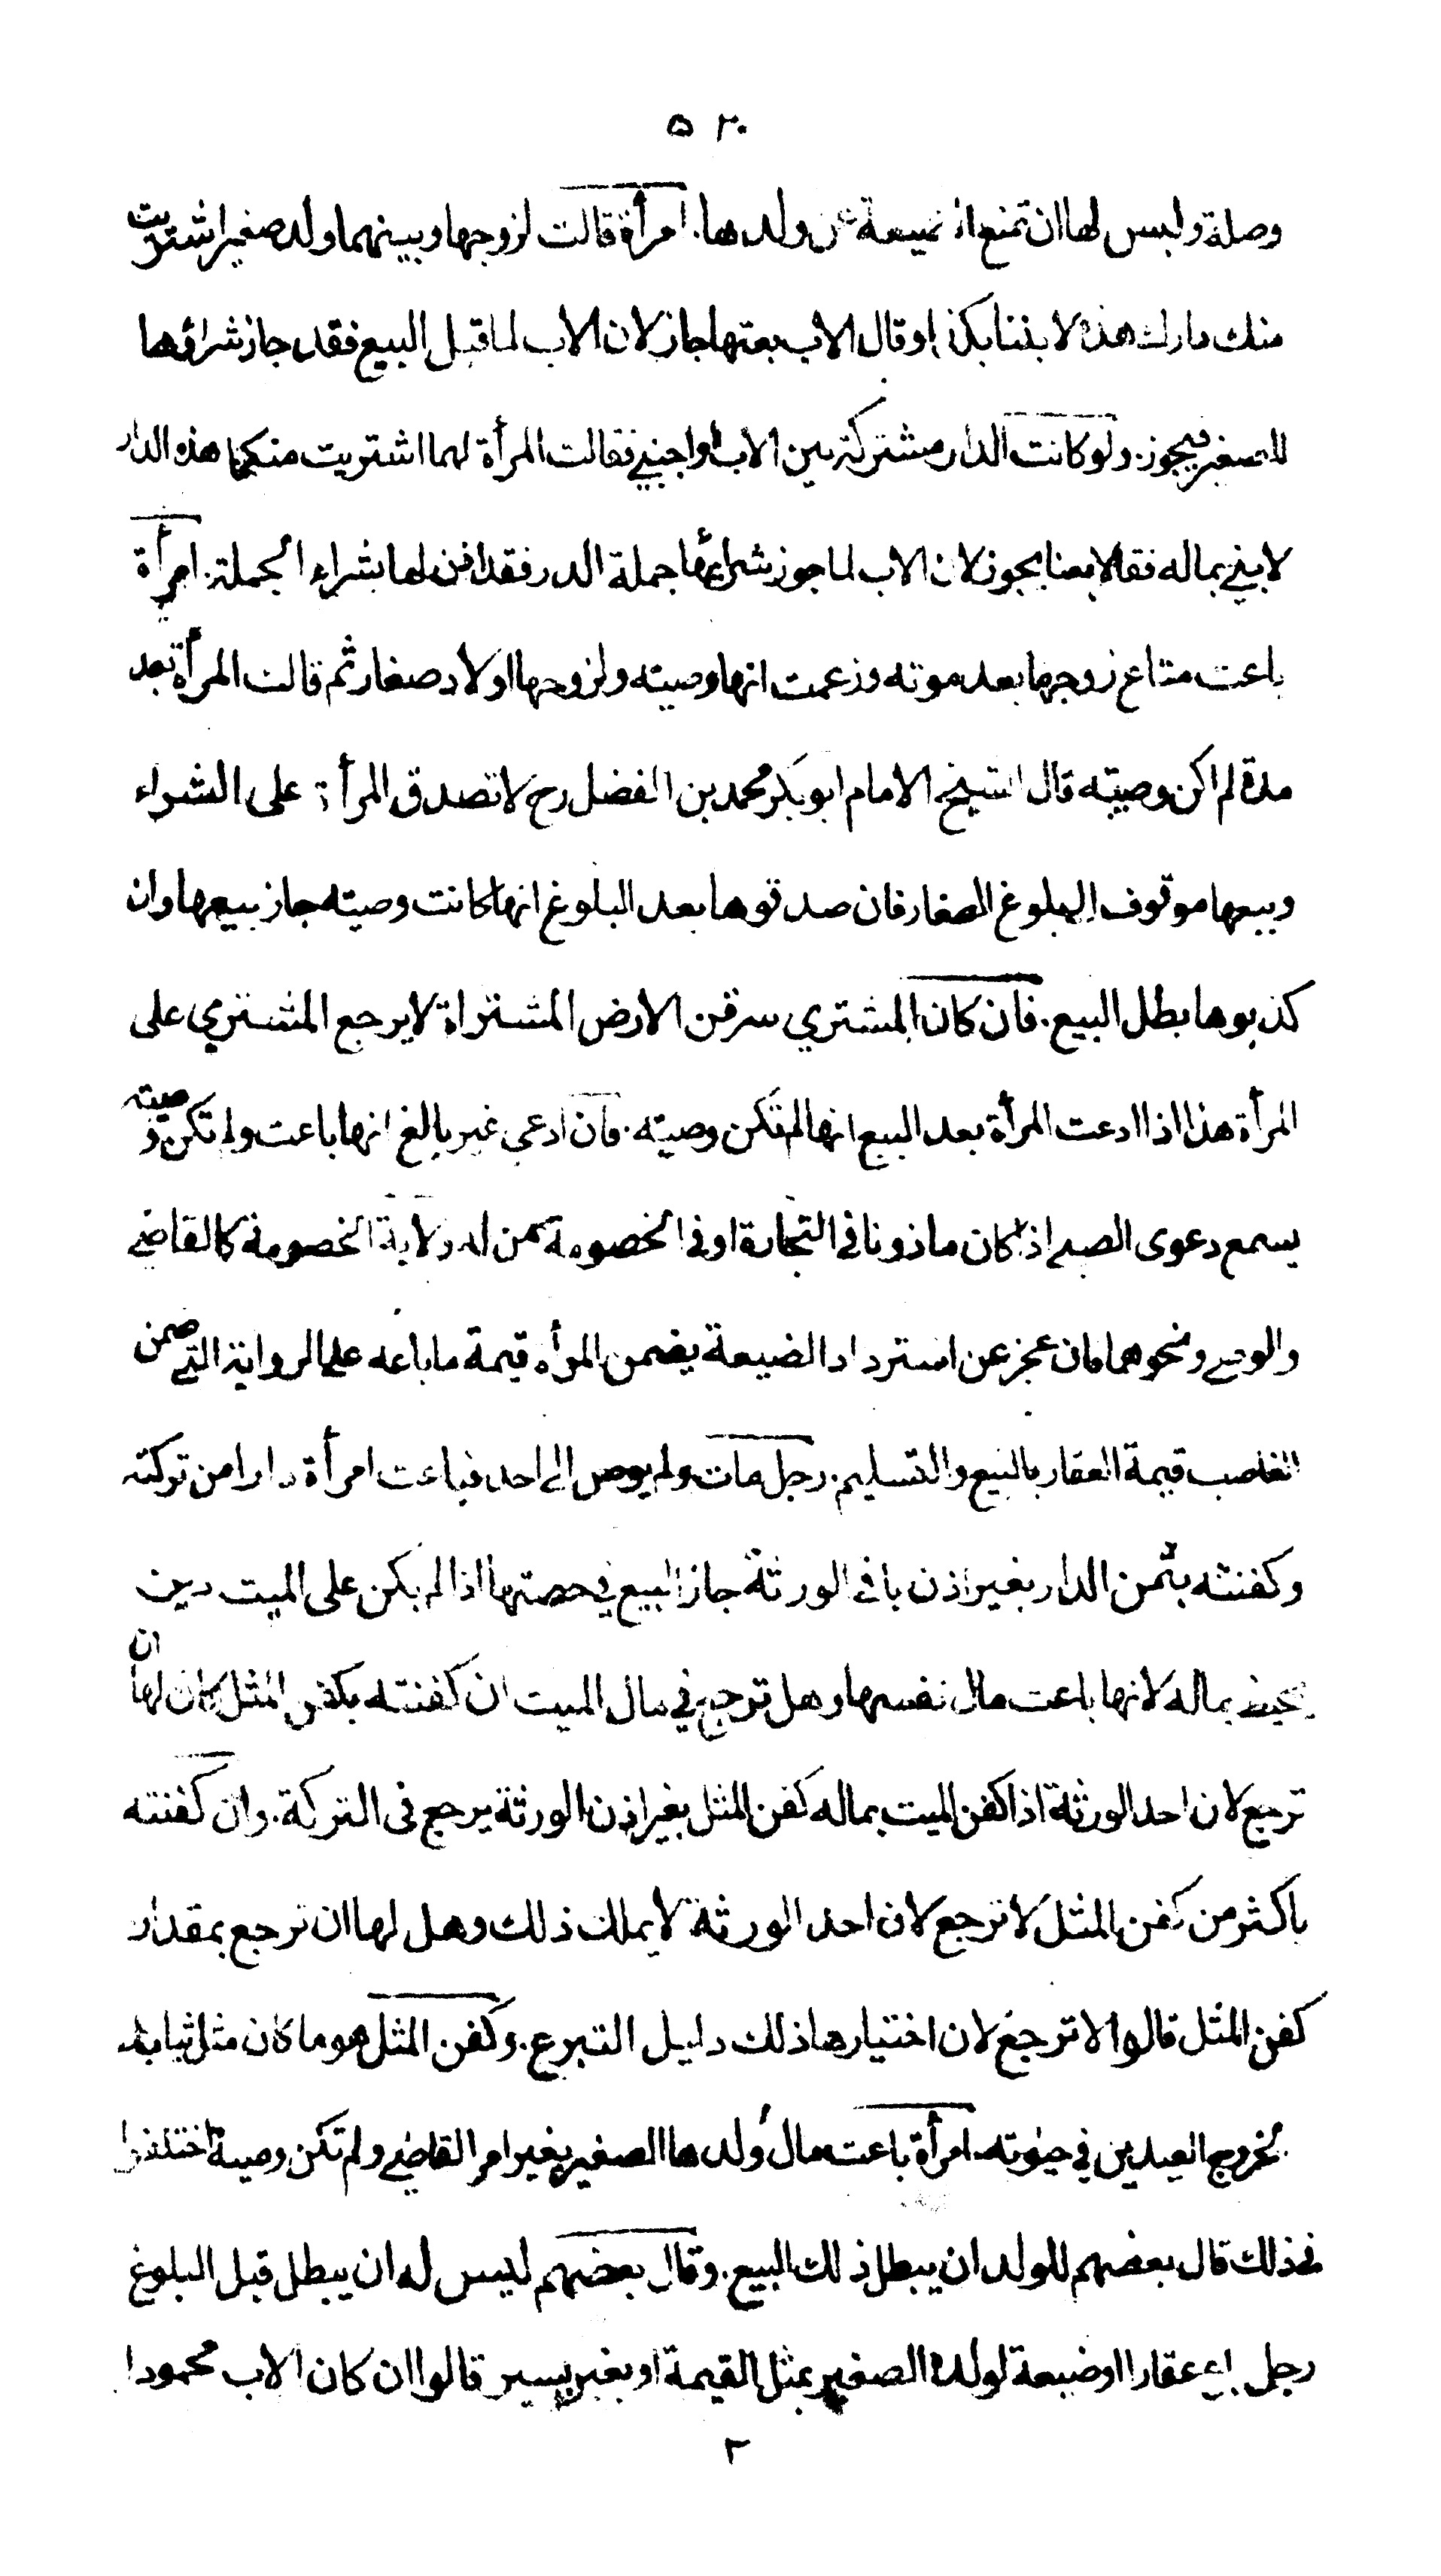 ٥٢٠
وصلة وليس لها ان تمنع الضيعة عن ولدها. امرأة قالت لزوجها وبينهما ولد صغير اشتريت
منك دارك هذه لابننا بكذا وقال الاب بعتها جاز لان الاب لما قبل البيع فقد جاز شراؤها
للصغير فيجوز. ولو كانت الدار مشتركة بين الاب واجنبي فقالت المرأة لهما اشتريت منكما هذه الدار
لابني بماله فقالا بعنا يجوز لان الاب لما جوز شراءها جملة الدر فقد اذن لها بشراء الجملة. امرأة
باعت متاع زوجها بعد موته وزعمت انها وصيته ولزوجها اولاد صغار ثم قالت المرأة بعد
مدة لم اكن وصيته قال الشيخ الامام ابو بكر محمد بن الفضل رح لا تصدق المرأة على الشراء
وبيعها موقوف الى بلوغ الصغار فان صدقوها بعد البلوغ انها كانت وصيته جاز بيعها وان
كذبوها بطل البيع. فان كان المشتري سرقن الارض المشتراة لا يرجع المشتري على
المرأة هذا اذا ادعت المرأة بعد البيع انها لم تكن وصيته. فان ادعى غير بالغ انها باعت ولم تكن وصيته
يسمع دعوى الصبي اذا كان ماذونا في التجارة او في الخصومة ممن له ولاية الخصومة كالقاضي
والوصي ونحوهما فان عجز عن استرداد الضيعة يضمن المرأه قيمة ما باعه على الرواية التي ضمن
الغاصب قيمة العقار بالبيع والتسليم. رجل مات ولم يوص الى احد فباعت امرأة دارا من تركته
وكفنته بثمن الدار بغير اذن باقي الورثة جاز البيع في حصتها اذا لم يكن على الميت دين
يحيط بماله لانها باعت مال نفسها وهل ترجع في مال الميت ان كفنته بكفن المثل كان لها ان
ترجع لان احد الورثة اذا كفن الميت بماله كفن المثل بغير اذن الورثة يرجع في التركة. وان كفنته
باكثر من كفن المثل لا ترجع لان احد الورثة لا يملك ذلك وهل لها ان ترجع بمقدار
كفن المثل قالوا لا ترجع لان اختيارها ذلك دليل التبرع. وكفن المثل هو ما كان مثل ثيابه
لخروج العيدين في حيوته. امرأة باعت مال ولدها الصغير بغير امر القاضي ولم تكن وصية اختلفوا
فى ذلك قال بعضهم للولد ان يبطل ذلك البيع. وقال بعضهم ليس له ان يبطل قبل البلوغ
رجل باع عقارا او ضيعة لولده الصغير بمثل القيمة او بغبن يسير قالوا ان كان الاب محمودا
٢